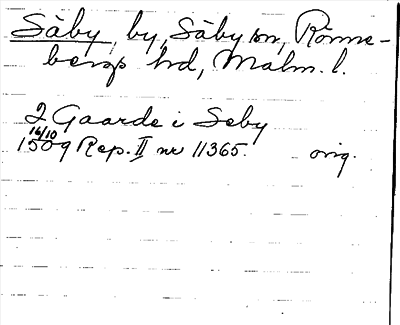 Säby, by, Säby sn, Rönne-
bergs hd, Malm. l.
2 Gaarde i Seby
16/10
1509 Rep. II nr 11365. orig.